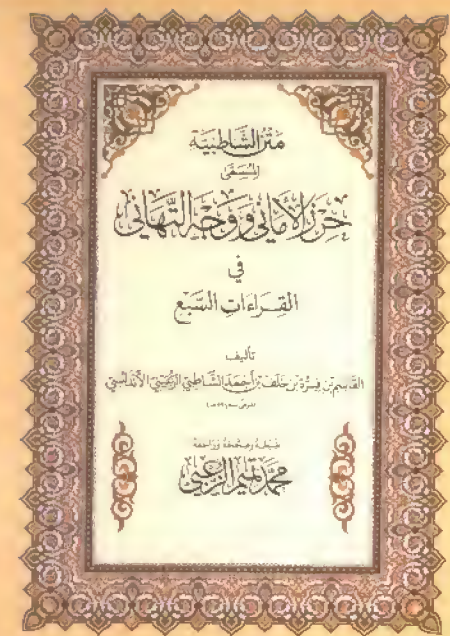 مَتْنُ الشَّاطِبِيَّة
المُسَمَّى
حِرْزُ الأَمَانِي وَوَجْهُ التَّهَانِي
فِي
القِرَاءَاتِ السَّبْعِ
تأليف
القَاسِم بْنِ فِيرُّه بْنِ خَلَف بْنِ أَحْمَد الشَّاطِبِيِّ الرُّعَيْنِيِّ الأَنْدَلُسِيِّ
ضَبَطَهُ وَصَحَّحَهُ وَرَاجَعَهُ
مُحَمَّد تَمِيم الزُّعْبِي